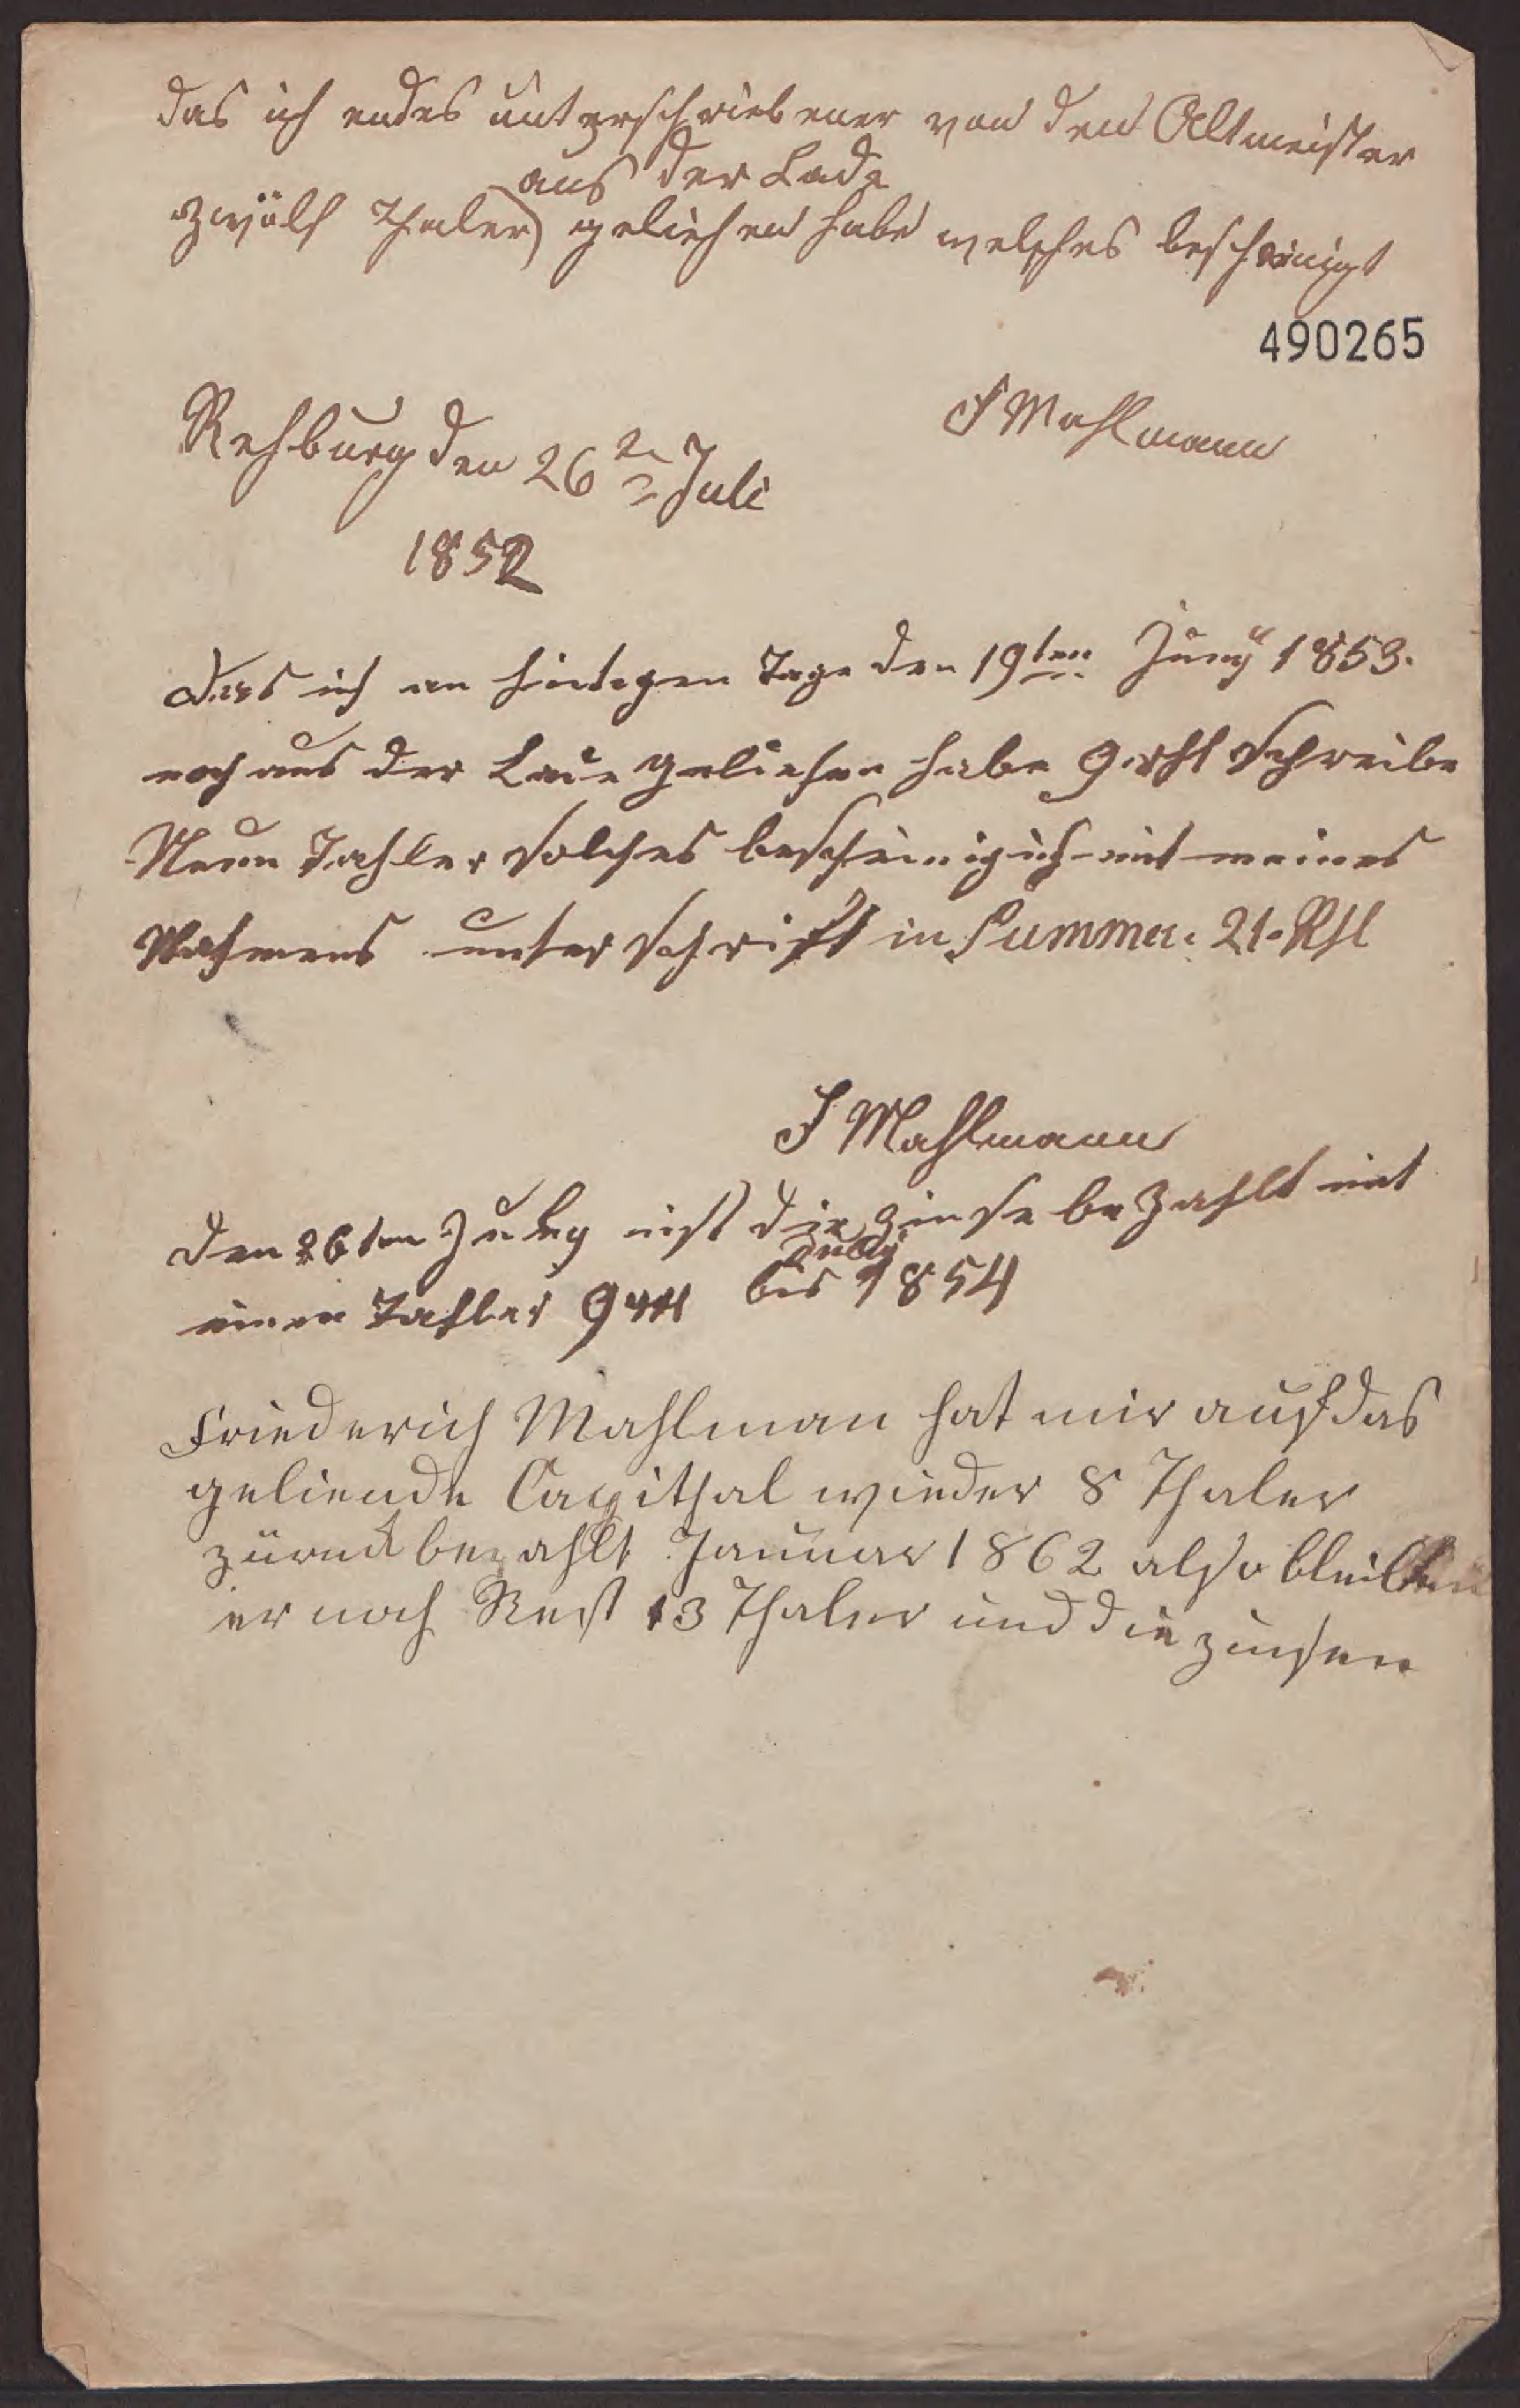 das ich endes unterschriebener von den Altmeister
aus der Lade
zwölf Thaler geliehen habe welches bescheinigt
490265
F Mahlmann
Rehburg den 26 Juli
1852
Das ich an hintigen Tage den 19ten Juny 1853.
noch aus der Lade geliehen habe 9 rthl Schreibe
Neun Tahler Solches bescheinig ich mit meines
Nahmens unter Schrift in Summa: 21 Rthl
F Mahlmann
den 26ten July ist die Zinse be Zahlt mit
July
einen Tahler 9 bis 1854
Friederich Mahlman hat mir auf das
geliende Capithal wieder 8 Thaler
zürück bezahlt Januar 1862 also bleibt
er noch Rest 13 Thaler und die zinsen